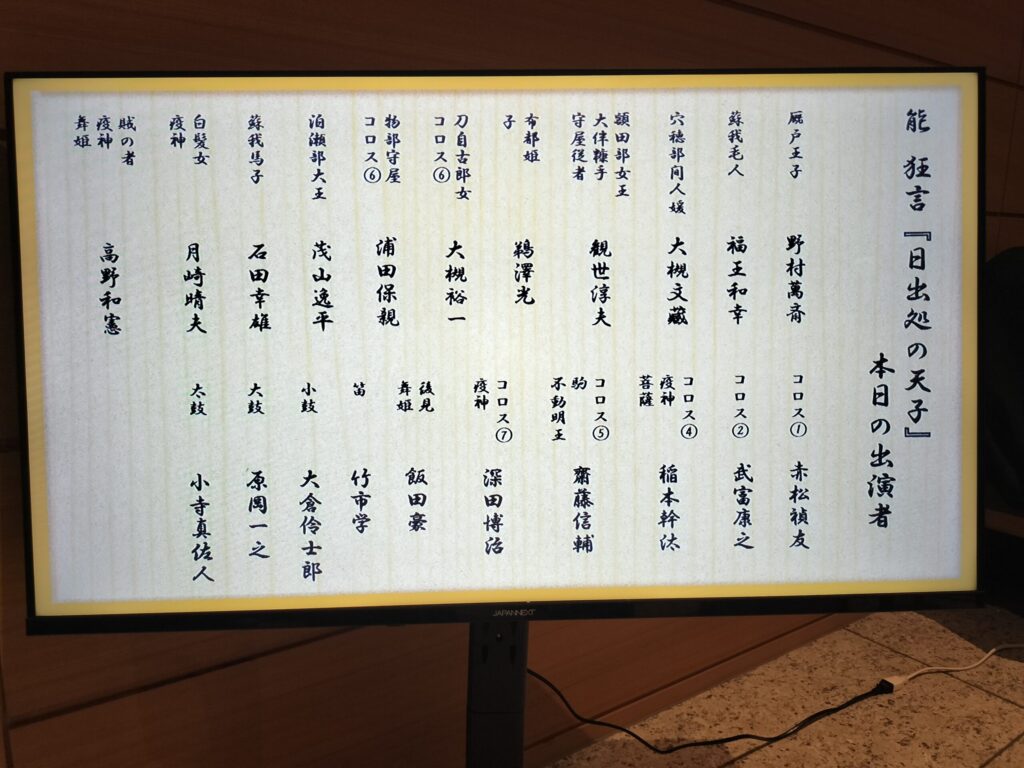 能 狂言『日出処の天子』
本日の出演者
厩戸王子
野村萬斎
蘇我毛人
福王和幸
穴穂部間人媛
大槻文藏
額田部女王
大伴糠手
守屋従者
観世淳夫
布都姫
子
鵜澤光
刀自古郎女
コロス⑥
大槻裕一
物部守屋
コロス⑥
浦田保親
泊瀬部大王
茂山逸平
蘇我馬子
石田幸雄
白髪女
疫神
月崎晴夫
賊の者
疫神
舞姫
高野和憲
コロス①
赤松禎友
コロス②
武富康之
コロス④
疫神
菩薩
稲本幹汰
コロス⑤
駒
不動明王
齋藤信輔
コロス⑦
疫神
深田博治
後見
舞姫
飯田豪
笛
竹市学
小鼓
大倉伶士郎
大鼓
原岡一之
太鼓
小寺真佐人
JAPANNEXT